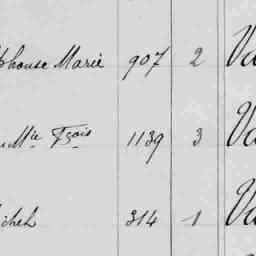 phonse Marie 907 2 Va
Mie Fçois 1139 3 Va
ichel 314 1 Va